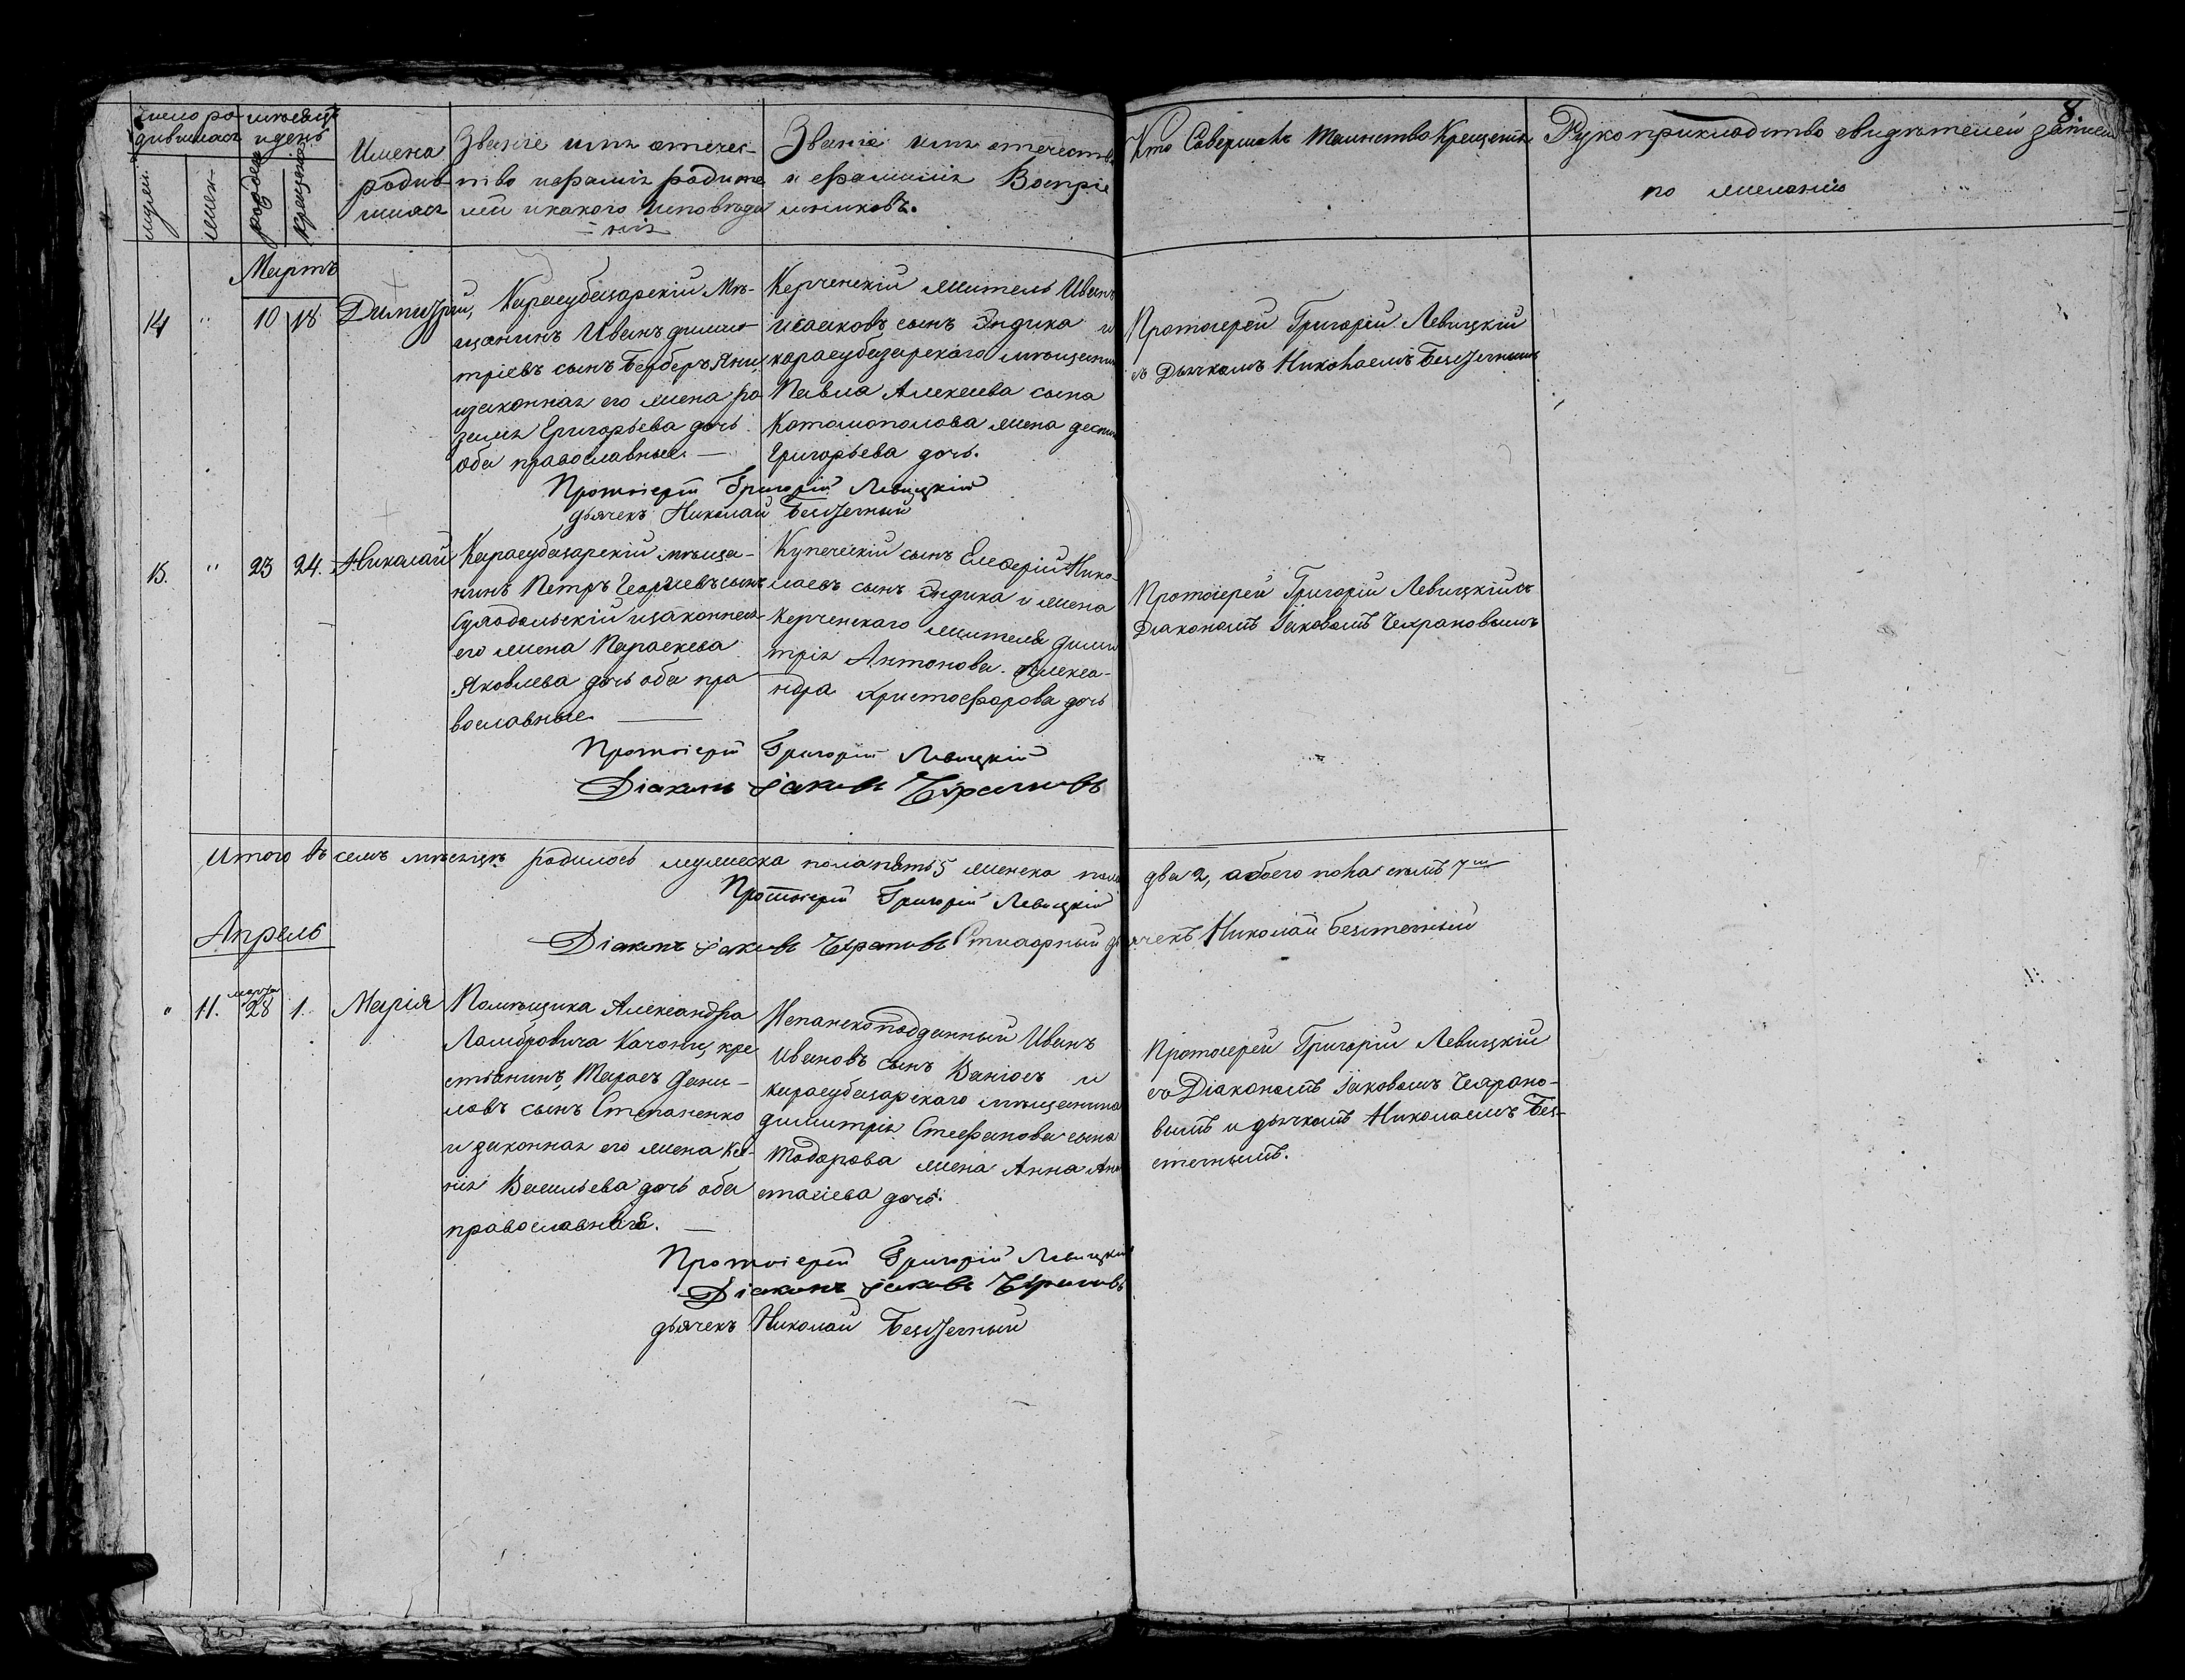 8.
число ро-
дившихся
мѣсяцъ
и день
мужей.
женск-
рождения
крещения
Имена
родив-
шихся
Званіе имя отечес-
тво и фамилія родите
лей и какого исповѣда
= нія
Званіе имя отечество
и фамилія Воспріе
мниковъ.
Кто Совершалъ Таинство Крещенія
Рукоприкладство свидѣтелей записи
по желанію
Мартъ
14 " 10 18 Димитрій,
Карасубазарскій Мѣ-
щанинъ Иванъ Дими-
тріевъ сынъ Берберъ Яни,
и законная его жена
Григорьева дочь
оба православные. —
Керченскій житель Иванъ
Исааковъ сынъ Эндика и
карасубазарского мѣщанина
Павла Алексеева сына
жена
Григорьева дочь.
Протоіерей Григорій Левицкій
съ Дьячкомъ Николаемъ Безстечнымъ
Протоіерей Григорій Левицкій
дьячекъ Николай Безстечный
15. " 23 24. Николай
Карасубазарскій мѣща-
нинъ Петръ Георгіевъ сынъ
и законная
его жена Параскева
Яковлева дочь оба пра
вославные. —
Купеческій сынъ Елеферій Нико-
лаевъ сынъ Эндика и жена
Керченского жителя Дими
трія Антонова Алекса-
ндра Христофорова дочь
Протоіерей Григорій Левицкій съ
Діакономъ Іаковомъ Чехрановымъ
Протоіерей Григорій Левицкій
Діаконъ Іаковъ Чехрановъ
Итого въ семъ мѣсяцѣ родилось мужеска пола пять 5 женска пола два 2, а обоего пола семь 7мь
Протоіерей Григорій Левицкій
Діаконъ Іаковъ Чехрановъ Стихарный дьячекъ Николай Безстечный
Апрель
" 11. марта 28 1. Марія
Помѣщика Александра
Ламбровича Качони, кре
стьянинъ Тарасъ Дани-
ловъ сынъ Степаненко
и законная его жена Ксе-
нія Васильева дочь оба
православные. —
Испанскоподданный Иванъ
Ивановъ сынъ и
карасубазарского мѣщанина
Димитрія Стефанова сына
Тодорова жена Анна Ана
стасіева дочь.
Протоіерей Григорій Левицкій
съ Діакономъ Іаковомъ Чехрано-
вымъ и дьячкомъ Николаемъ Без-
стечнымъ.
Протоіерей Григорій Левицкій
Діаконъ Іаковъ Чехрановъ
дьячекъ Николай Безстечный